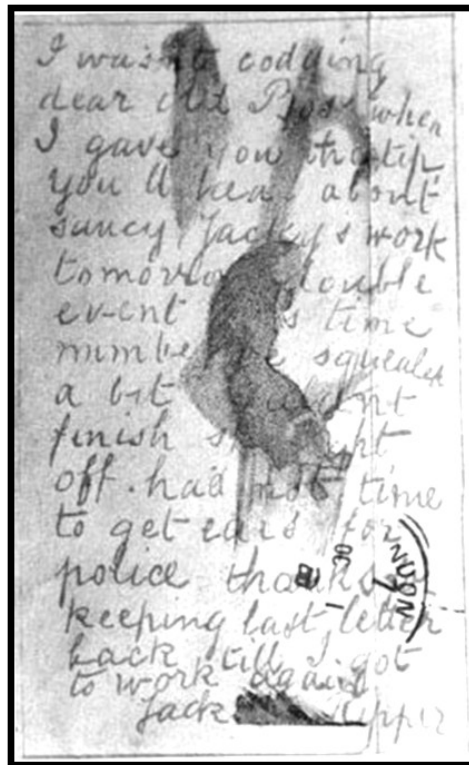 I wasn't codding
dear old Boss when
I gave you the tip.
you'll hear about
saucy Jackys work
tomorrow double
event time
number squealed
a bit
finish
off. had not time
to get ears for
police thanks
keeping last letter
back till I got
to work again.
Jack Ripper